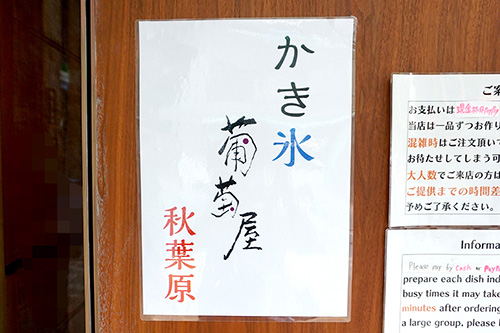 かき氷
葡萄屋
秋葉原
お支払いは現金
当店は一品ずつお作り
混雑時はご注文頂いて
お待たせしてしまう可
大人数でご来店の方は
ご提供までの時間差
予めご了承ください。
Informa
Please pay by Cash or PayPa
prepare each dish ind
busy times it may take
minutes after ordering
a large group, please